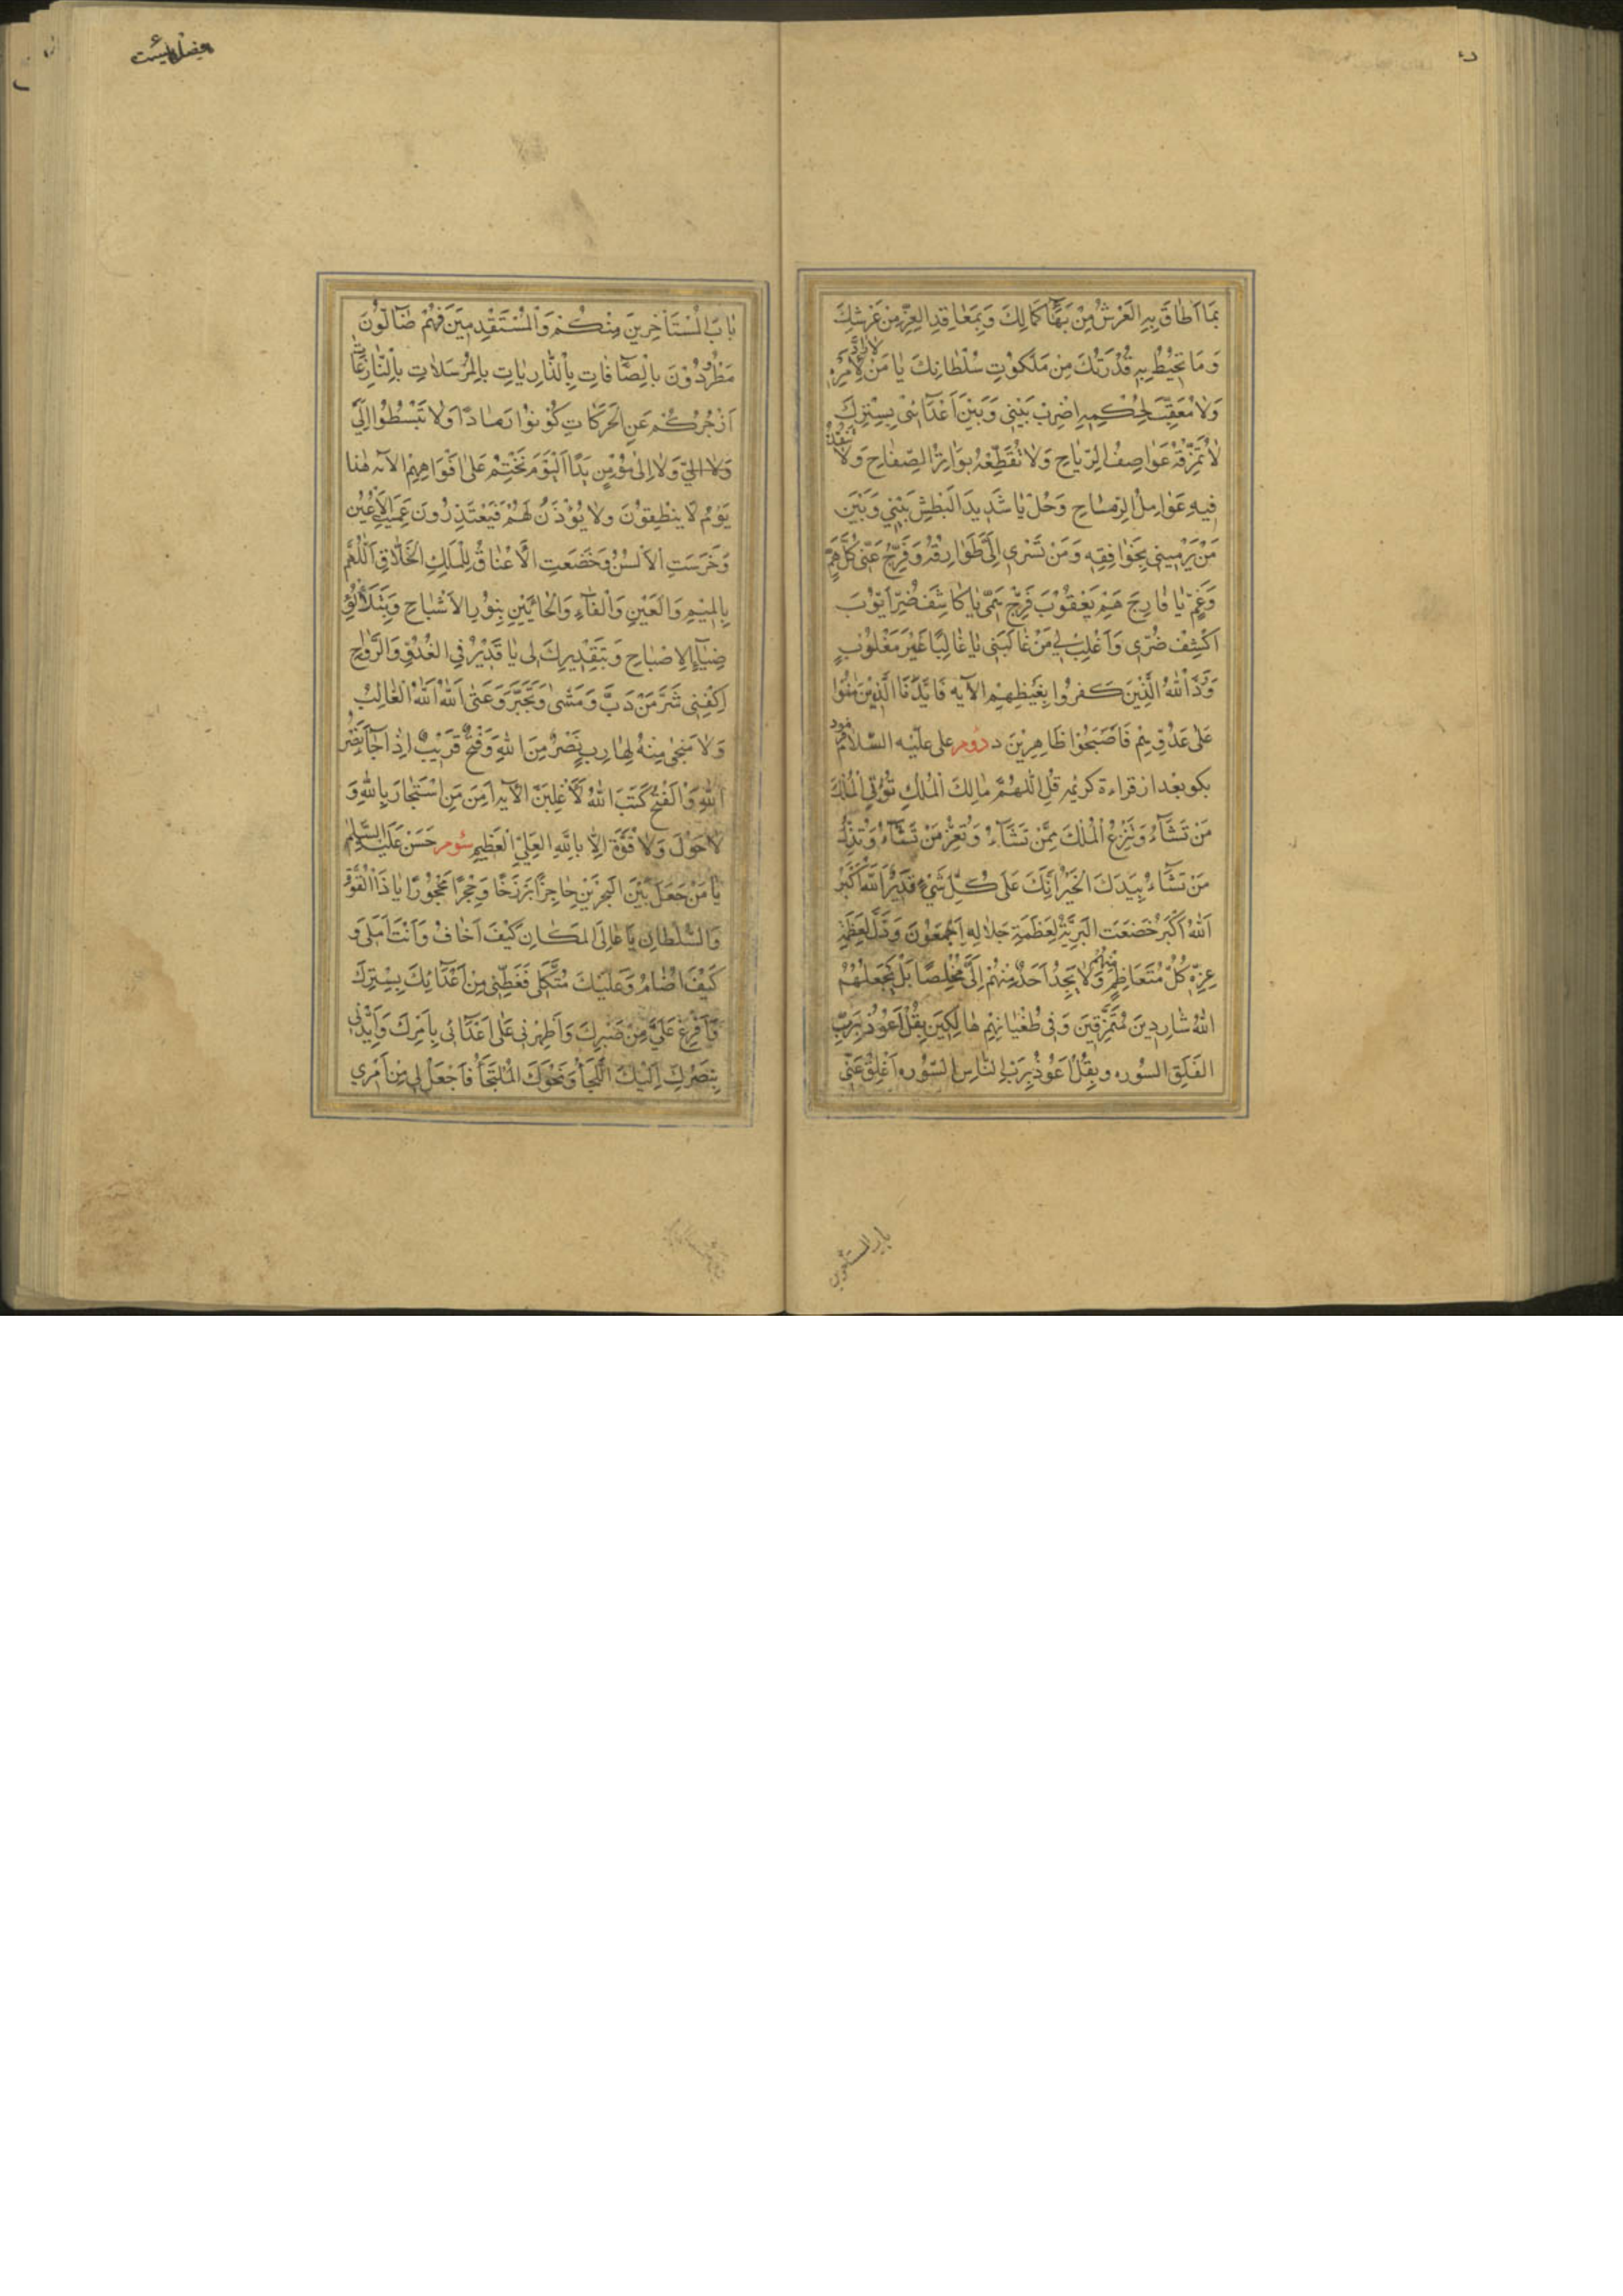 بِمَا اَطَاقَ بِهِ الْعَرْشُ مِنْ بَهَآءِ كَمَالِكَ وَبِمَعَاقِدِ الْعِزِّ مِنْ عَرْشِكَ
وَمَا تُحِيْطُ بِهِ قُدْرَتُكَ مِنْ مَلَكُوْتِ سُلْطَانِكَ يَا مَنْ لَا رَآدَّ لِاَمْرِهِ
وَلَا مُعَقِّبَ لِحُكْمِهِ اِضْرِبْ بَيْنِي وَبَيْنَ اَعْدَآئِي بِسِتْرِكَ
لَا تُمَزِّقُهُ عَوَاصِفُ الرِّيَاحِ وَلَا تُقَطِّعُهُ بَوَاتِرُ الصِّفَاحِ وَلَا تَنْفُذُ
فِيهِ عَوَامِلُ الرِّمَاحِ وَحُلْ يَا شَدِيدَ الْبَطْشِ بَيْنِي وَبَيْنَ
مَنْ يَرْمِينِي بِخَوَافِقِهِ وَمَنْ تَسْرِي اِلَيَّ طَوَارِقُهُ وَفَرِّجْ عَنِّي كُلَّ هَمٍّ
وَغَمٍّ يَا فَارِجَ هَمِّ يَعْقُوْبَ فَرِّجْ هَمِّي يَا كَاشِفَ ضُرِّ اَيُّوْبَ
اَكْشِفْ ضُرِّي وَاغْلِبْ لِي مَنْ غَالَبَنِي يَا غَالِبًا غَيْرَ مَغْلُوْبٍ
وَرَدَّ اللهُ الَّذِينَ كَفَرُوا بِغَيْظِهِمْ الآيه فَاَيَّدْنَا الَّذِينَ اٰمَنُوْا
عَلٰى عَدُوِّهِمْ فَاَصْبَحُوْا ظَاهِرِيْنَ دوم على عليه السلام
بكو بعد از قراءة كريمه قُلِ اللّٰهُمَّ مَالِكَ الْمُلْكِ تُؤْتِي الْمُلْكَ
مَنْ تَشَآءُ وَتَنْزِعُ الْمُلْكَ مِمَّنْ تَشَآءُ وَتُعِزُّ مَنْ تَشَآءُ وَتُذِلُّ
مَنْ تَشَآءُ بِيَدِكَ الْخَيْرُ اِنَّكَ عَلٰى كُلِّ شَيْءٍ قَدِيْرٌ اَللهُ اَكْبَرُ
اَللهُ اَكْبَرُ خَضَعَتِ الْبَرِيَّةُ لِعَظَمَةِ جَلَالِهِ اَجْمَعُوْنَ وَذَلَّ لِعَظَمَةِ
عِزِّهِ كُلُّ مُتَعَاظِمٍ مِنْهُمْ وَلَا يَجِدُ اَحَدٌ مِنْهُمْ اِلَيَّ مُخْلِصًا بَلْ يَجْعَلُهُمُ
اللهُ شَارِدِينَ مُتَمَزِّقِينَ وَفِي طُغْيَانِهِمْ هَالِكِينَ بِقُلْ اَعُوْذُ بِرَبِّ
الْفَلَقِ السوره وبِقُلْ اَعُوْذُ بِرَبِّ النَّاسِ السوره اَغْلِقُ عَنِّي
باب المستأخرين
بفضله ليست
بَابَ الْمُسْتَاْخِرِينَ مِنْكُمْ وَالْمُسْتَقْدِمِيْنَ فَهُمْ ضَآلُّوْنَ
مَطْرُوْدُوْنَ بِالصَّآفَّاتِ بِالذَّارِيَاتِ بِالْمُرْسَلَاتِ بِالنَّازِعَاتِ
اَزْجُرُكُمْ عَنِ الْحَرَكَاتِ كُوْنُوْا رَمَادًا وَلَا تَبْسُطُوْا اِلَيَّ
وَلَا اِلٰى مُؤْمِنٍ يَدًا اَلْيَوْمَ نَخْتِمُ عَلٰى اَفْوَاهِهِمْ الآيه هٰذَا
يَوْمُ لَا يَنْطِقُوْنَ وَلَا يُؤْذَنُ لَهُمْ فَيَعْتَذِرُوْنَ عَمِيَتِ الْاَعْيُنُ
وَخَرَسَتِ الْاَلْسُنُ وَخَضَعَتِ الْاَعْنَاقُ لِلْمَلِكِ الْخَلَّاقِ اَللّٰهُمَّ
بِالْمِيْمِ وَالْعَيْنِ وَالْفَآءِ وَالْحَائَيْنِ بِنُوْرِ الْاَشْبَاحِ وَبِتَلَأْلُؤِ
ضِيَآءِ الْاِصْبَاحِ وَبِتَقْدِيرِكَ لِي يَا قَدِيْرُ فِي الْغُدُوِّ وَالرَّوَاحِ
اِكْفِنِي شَرَّ مَنْ دَبَّ وَمَشٰى وَتَجَبَّرَ وَعَتٰى اَللهُ اَللهُ الْغَالِبُ
وَلَا مَنْجٰى مِنْهُ لِهَارِبٍ نَصْرٌ مِنَ اللهِ وَفَتْحٌ قَرِيْبٌ اِذَا جَآءَ نَصْرُ
اللهِ وَالْفَتْحُ كَتَبَ اللهُ لَاَغْلِبَنَّ الآيه اَمِنَ مَنِ اسْتَجَارَ بِاللهِ وَ
لَا حَوْلَ وَلَا قُوَّةَ اِلَّا بِاللهِ الْعَلِيِّ الْعَظِيمِ سوم حسن عليه السلم
يَا مَنْ جَعَلَ بَيْنَ الْبَحْرَيْنِ حَاجِزًا بَرْزَخًا وَحِجْرًا مَحْجُوْرًا يَا ذَا الْقُوَّةِ
وَالسُّلْطَانِ يَا عَالِيَ الْمَكَانِ كَيْفَ اَخَافُ وَاَنْتَ اَمَلِي وَ
كَيْفَ اُضَامُ وَعَلَيْكَ مُتَّكَلِي فَغَطِّنِي مِنْ اَعْدَآئِكَ بِسِتْرِكَ
وَاَفْرِغْ عَلَيَّ مِنْ صَبْرِكَ وَاَظْهِرْنِي عَلٰى اَعْدَآئِي بِاَمْرِكَ وَاَيِّدْنِي
بِنَصْرِكَ اِلَيْكَ الْلَّجَأُ وَنَحْوَكَ الْمُلْتَجَأُ فَاجْعَلْ لِي مِنْ اَمْرِي